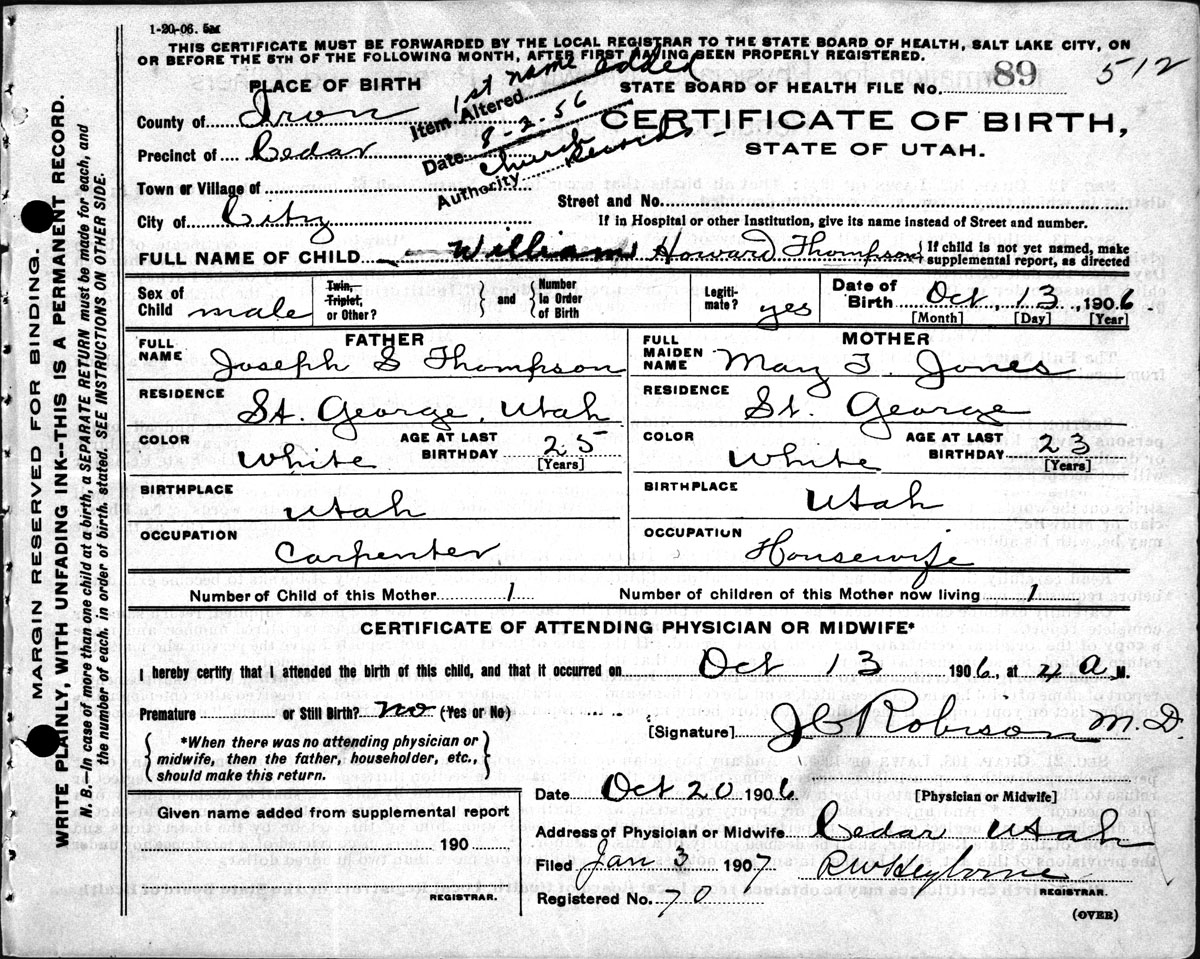 1-20-06. 5m
THIS CERTIFICATE MUST BE FORWARDED BY THE LOCAL REGISTRAR TO THE STATE BOARD OF HEALTH, SALT LAKE CITY, ON
OR BEFORE THE 5TH OF THE FOLLOWING MONTH, AFTER FIRST HAVING BEEN PROPERLY REGISTERED.
512
PLACE OF BIRTH
STATE BOARD OF HEALTH FILE No. 89
Item Altered 1st name added
Date 8-2-56
Authority Church Records
County of Iron
CERTIFICATE OF BIRTH,
Precinct of Cedar
STATE OF UTAH.
Town or Village of
Street and No.
City of City
If in Hospital or other Institution, give its name instead of Street and number.
FULL NAME OF CHILD William Howard Thompson { If child is not yet named, make supplemental report, as directed
Sex of Child male Twin, Triplet, or Other? } and { Number In Order of Birth Legiti-mate? yes Date of Birth Oct, 13, 1906
[Month] [Day] [Year]
FATHER
MOTHER
FULL NAME Joseph S Thompson
FULL MAIDEN NAME Mary J. Jones
RESIDENCE St. George, Utah
RESIDENCE St. George
COLOR White AGE AT LAST BIRTHDAY 25 [Years]
COLOR White AGE AT LAST BIRTHDAY 23 [Years]
BIRTHPLACE Utah
BIRTHPLACE Utah
OCCUPATION Carpenter
OCCUPATION Housewife
Number of Child of this Mother 1 Number of children of this Mother now living 1
CERTIFICATE OF ATTENDING PHYSICIAN OR MIDWIFE*
I hereby certify that I attended the birth of this child, and that it occurred on Oct 13 1906, at 4 A M.
Premature or Still Birth? no (Yes or No)
[Signature] J C Robison M.D.
{ *When there was no attending physician or midwife, then the father, householder, etc., should make this return. }
[Physician or Midwife]
Date Oct 20 1906
Given name added from supplemental report
190
REGISTRAR.
Address of Physician or Midwife Cedar Utah
Filed Jan 3 1907 RW Heyborne
REGISTRAR.
Registered No. 70
(OVER)
MARGIN RESERVED FOR BINDING.
WRITE PLAINLY, WITH UNFADING INK--THIS IS A PERMANENT RECORD.
N. B.--In case of more than one child at a birth, a SEPARATE RETURN must be made for each, and
the number of each, in order of birth, stated. SEE INSTRUCTIONS ON OTHER SIDE.